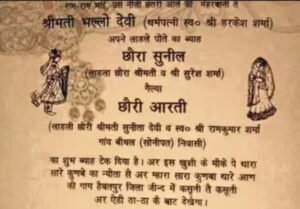 राम-राम भाई, उस नीली छतरी आले की मेहरबानी तै
श्रीमती भल्लो देवी (धर्मपत्नी स्व० श्री हरकेश शर्मा)
अपने लाडले पोते का ब्याह
छौरा सुनील
(लाडला छौरा श्रीमती व श्री सुरेश शर्मा)
गैल्या
छौरी आरती
(लाडली छौरी श्रीमती सुनीता देवी व स्व० श्री रामकुमार शर्मा
गांव बीधल (सोनीपत) निवासी)
का शुभ ब्याह टेक दिया है। अर इस खुशी के मौके पे थारा
सारे कुणबे का न्यौता सै अर म्हारा सारा कुणबा थारे आण
की गाम हैबतपुर जिला जीन्द में कसुती तै कसूती
अर ऐडी ठा-ठा कै बाट देखेगा।